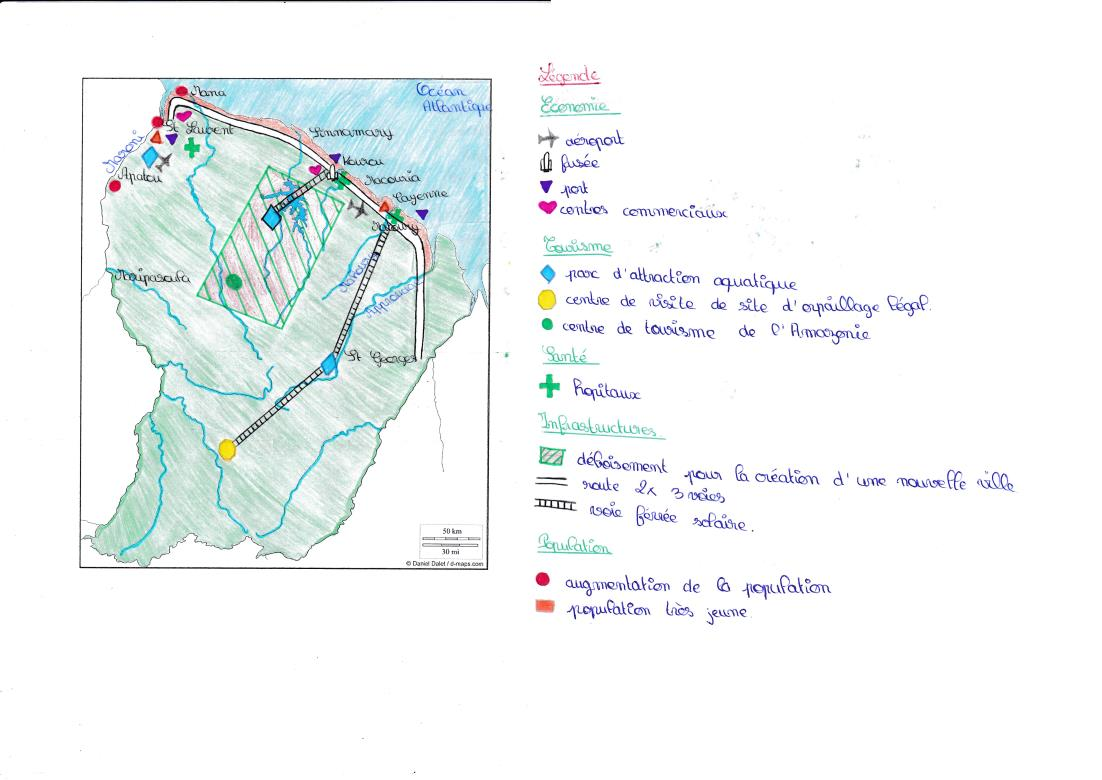 Océan
Atlantique
Mana
St Laurent
Maroni
Apatou
Sinnamary
Kourou
Macouria
Cayenne
Matoury
Maripasoula
Approuague
St Georges
50 km
30 mi
© Daniel Dalet / d-maps.com
Légende
Economie
aéroport
fusée
port
centres commerciaux
Tourisme
parc d'attraction aquatique
centre de visite de site d'orpaillage légal.
centre de tourisme de l'Amazonie
Santé
hopitaux
Infrastructures
déboisement pour la création d'une nouvelle ville
route 2x 3 voies
voie ferrée solaire.
Population
augmentation de la population
population très jeune.